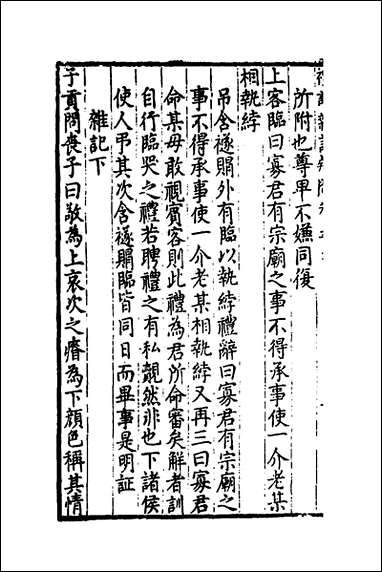 所附也尊卑不嫌同復
上客臨曰寡君有宗廟之事不得承事使一介老某
相執綍
吊含襚賵外有臨以執綍禮辭曰寡君有宗廟之
事不得承事使一介老某相執綍又再三曰寡君
命某毋敢視賓客則此禮為君所命審矣解者訓
自行臨哭之禮若聘禮之有私覿然非也下諸侯
使人弔其次含襚賵臨皆同日而畢事是明証
雜記下
子貢問喪子曰敬為上哀次之瘠為下顔色稱其情